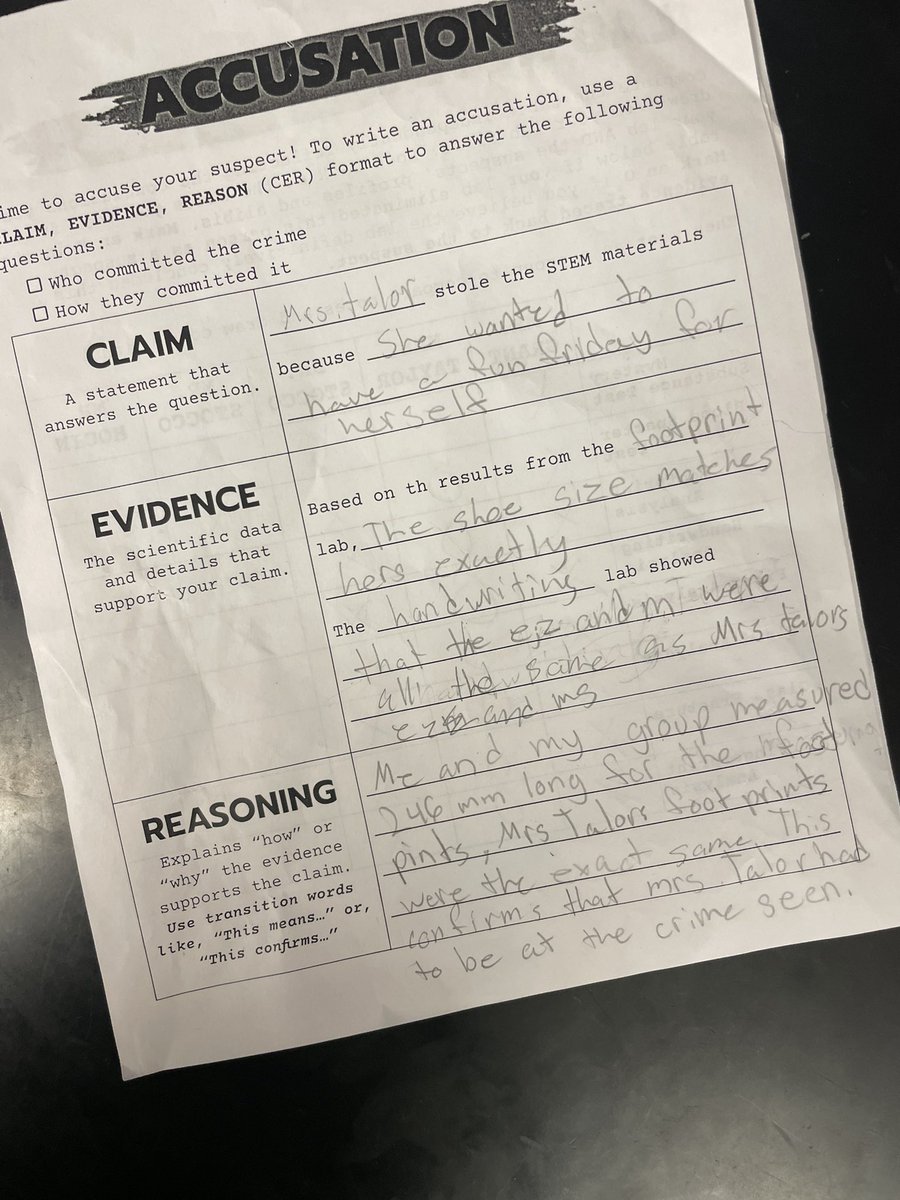 ACCUSATION
ime to accuse your suspect! To write an accusation, use a
LAIM, EVIDENCE, REASON (CER) format to answer the following
questions:
☐ Who committed the crime
☐ How they committed it
CLAIM
A statement that
answers the question.
Mrs. talor stole the STEM materials
because She wanted to
have a fun friday for
herself
EVIDENCE
The scientific data
and details that
support your claim.
Based on th results from the footprint
lab, The shoe size matches
hers exactly
The handwriting lab showed
that the e,z and m were
all the same as Mrs talors
ez and ms
REASONING
Explains "how" or
"why" the evidence
supports the claim.
Use transition words
like, "This means…" or,
"This confirms…"
Me and my group measured
246 mm long for the foot
pints, Mrs Talors foot prints
were the exact same. This
confirms that mrs. Talor had
to be at the crime seen.